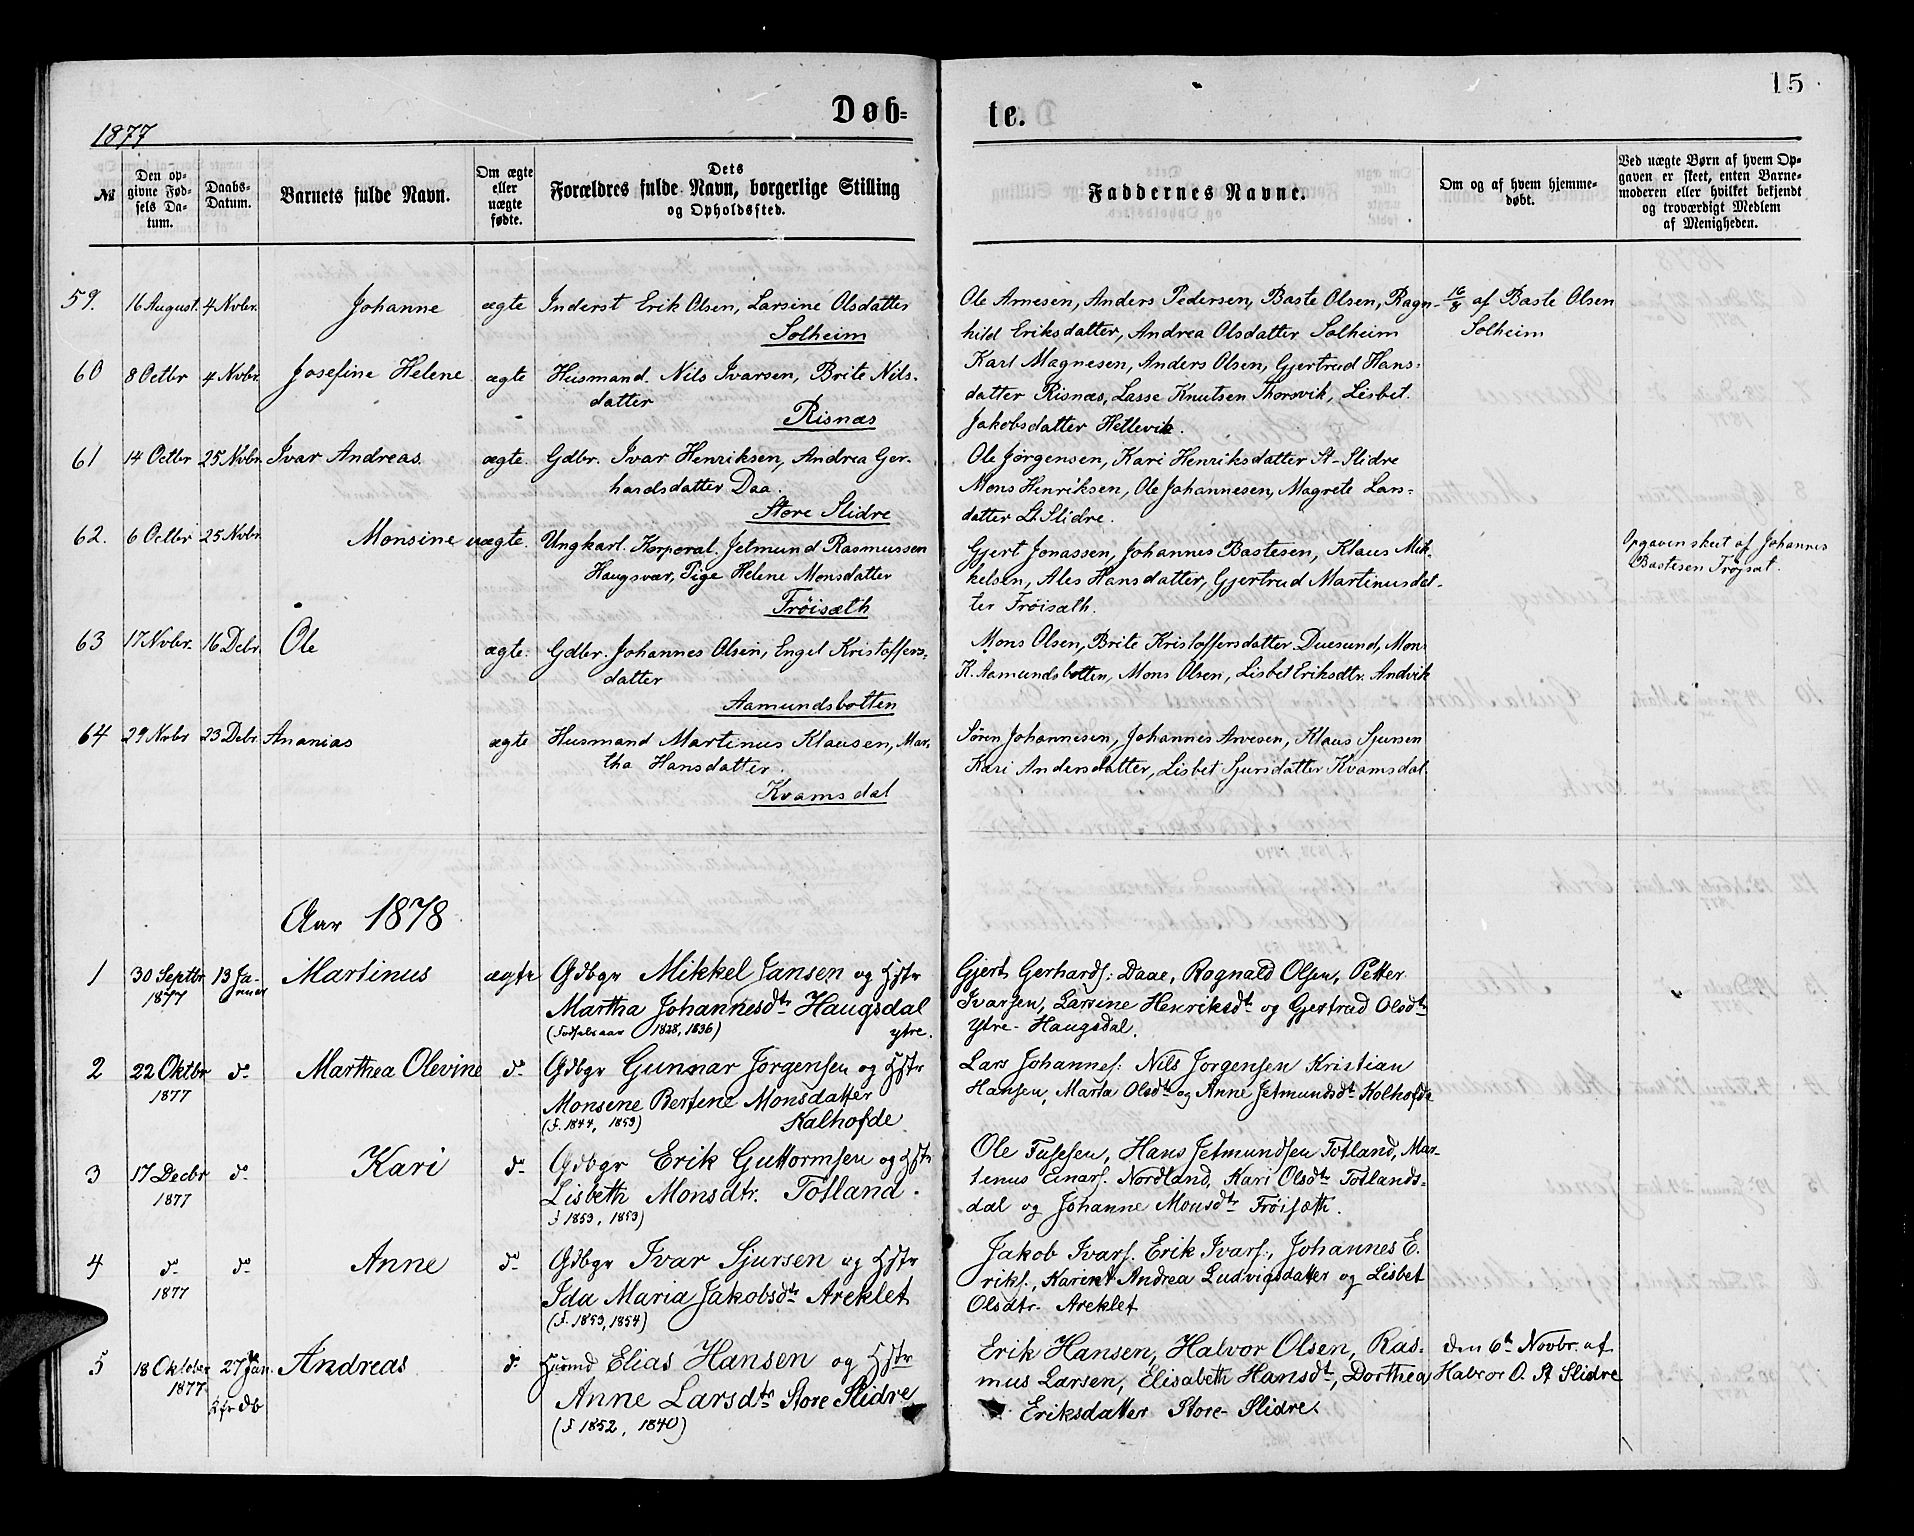 15
Døb=
te.
1877
№
Den op-
givne Fød-
sels Da-
tum.
Daabs-
Datum.
Barnets fulde Navn.
Om ægte
eller
uægte
fødte.
Dets
Forældres fulde Navn, borgerlige Stilling
og Opholdssted.
Faddernes Navne.
Om og af hvem hjemme-
døbt.
Ved uægte Børn af hvem Op-
gaven er skeet, enten Barne-
moderen eller hvilket bekjendt
og troværdigt Medlem
af Menigheden.
59. 16 August. 4 Novbr. Johanne ægte Inderst Erik Olsen, Larsine Olsdatter
Solheim
Ole Arnesen, Anders Pedersen, Baste Olsen, Ragn-
hild Eriksdatter, Andrea Olsdatter Solheim
16/8 af Baste Olsen
Solheim
60 8 Octbr 4 Novbr. Josefine Helene ægte Husmand. Nils Ivarsen, Brite Nils-
datter
Risnæs
Karl Magnesen, Anders Olsen, Gjertrud Hans-
datter Risnæs, Lasse Knutsen Thorsvik, Lisbet
Jakobsdatter Hellevik.
61 14 Octbr 25 Novbr. Ivar Andreas. ægte. Gdbr. Ivar Henriksen, Andrea Ger-
hardsdatter Daa.
Store Slidre
Ole Jørgensen, Kari Henriksdatter St-Slidre
Mons Henriksen, Ole Johannesen, Magrete Lars-
datter Lt. Slidre.
62. 6 Octbr 25 Novbr. Monsine uægte. Ungkarl. Korporal. Jetmund Rasmussen
Haugsvær, Pige Helene Monsdatter
Frøisæth
Gjert Jonassen, Johannes Bastesen, Klaus Mik-
kelsen, Ales Hansdatter, Gjertrud Martinusdat-
ter Frøisæth.
Opgaven skeet af Johannes
Bastesen Frøjset.
63 17 Novbr. 16 Debr. Ole ægte. Gdbr. Johannes Olsen, Engel Kristoffers-
datter
Aamundsbotten
Mons Olsen, Brite Kristoffersdatter Duesund, Mon
K. Aamundsbotten, Mons Olsen, Lisbet Eriksdtr. Andvik
64 29 Novbr 23 Debr. Ananias ægte Husmand Martinus Klausen, Mar-
tha Hansdatter.
Kvamsdal
Søren Johannesen, Johannes Arvesen, Klaus Sjursen
Kari Andersdatter, Lisbet Sjursdatter Kvamsdal.
Aar 1878
1 30 Septbr 1877 13 Ja-
nuar Martinus ægte Gdbgr Mikkel Jansen og Hstr
Martha Johannesdtr Haugsdal
(Fødselsaar 1828, 1836) ytre.
Gjert Gerhards: Daae, Rognald Olsen, Petter
Ivarsen, Larsine Henriksdtr og Gjertrud Olsdtr
Ytre- Haugsdal.
2 22 Oktbr 1877 do Marthea Olevine do Gdbgr Gunnar Jørgensen og Hstr
Monsine Bertine Monsdatter
(F. 1844, 1853) Kalhofde
Lars Johannes: Nils Jorgensen Kristian
Hansen, Marta Olsdtr og Anne Jetmundsdtr Kolhofde
3 17 Decbr 1877 do Kari do Gdbgr Erik Guttormsen og Hstr
Lisbeth Monsdtr. Totland.
(F 1853, 1853)
Ole Tufesen, Hans Jetmundsen Totland, Mar-
tenus Einars. Nordland, Kari Olsdtr Totlands-
dal og Johanne Monsdtr Frøisæth.
4 do 1877 do Anne do Gdbgr Ivar Sjursen og Hstr
Ida Maria Jakobsdtr Areklet
(F. 1853, 1854)
Jakob Ivars. Erik Ivars., Johannes E.
riks., Karen Andrea Ludvigsdatter og Lisbet
Olsdtr. Areklet
5 18 Oktober 1877 27 Jan. Andreas do Husmd Elias Hansen og Hstr
Anne Larsdtr Store Slidre
(F 1852, 1840)
Erik Hansen, Halvor Olsen, Ras-
mus Larsen, Elisabeth Hansdtr, Dorthea
Eriksdatter Store- Slidre.
den 6te Novbr. af
Halvor O. St Slidre